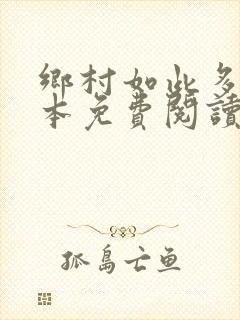 鄉村如此多
本免費閱讀
孤島亡鱼